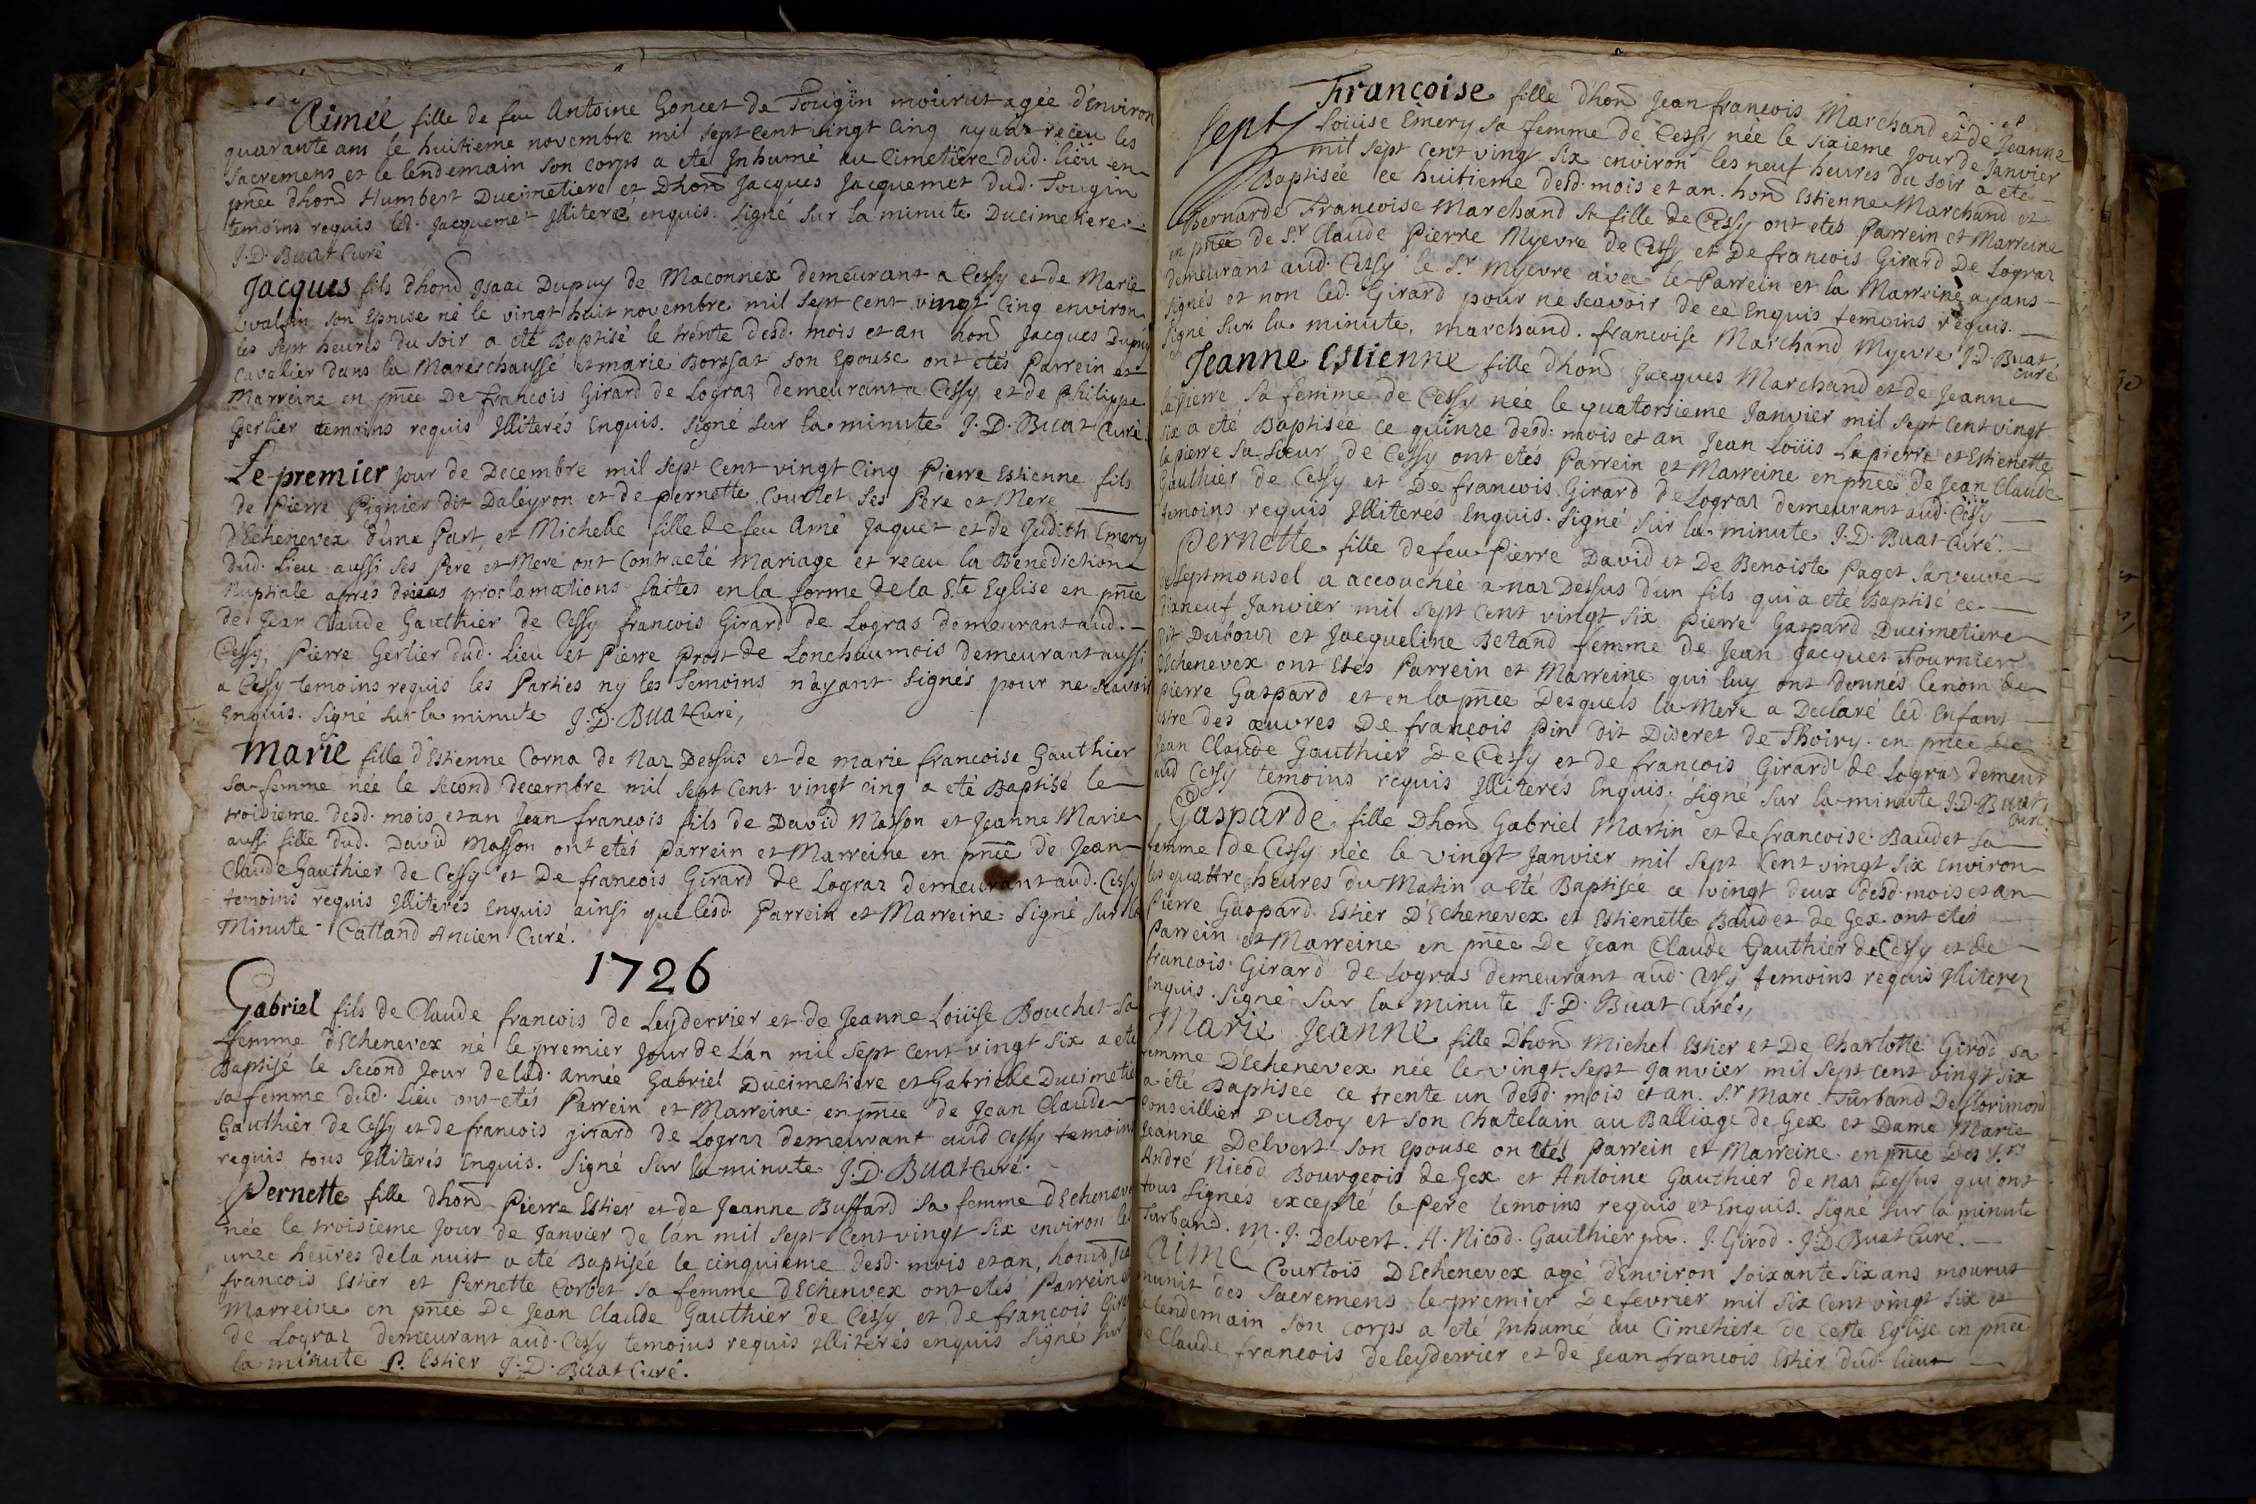 Aimeé fille de feu Antoine Goncet de Tougin mourut agée d'Environ
quarante ans le huitieme novembre mil sept cent vingt cinq ayant receu les
sacremens et le lendemain son corps a eté Inhumé au Cimetiere dud. lieu en
pñce dhonẽ Humbert Ducimetiere et Dhonẽ Jacques Jacquemet dud. Tougin
temoins requis led. Jacquemet Illiteré enquis. signé sur la minute Ducimetiere.
J. D. Buat Curé
Jacques fils dhonẽ Isaac Dupuy de Maconnex demeurant a Cessy et de Marie
son Epouse né le vingt huit novembre mil sept cent vingt cinq environ
les sept heures du soir a eté Baptisé le trente desd. mois et an honẽ Jacques Dupuy
cavalier dans la Marerchaussé et marie Borssat son Epouse ont etés Parrein et
Marreine en pñce De francois Girard de Lograz demeurant a Cessy et de Philippe
Gerlier temoins requis Illiterés Enquis. signé sur la minute J. D. Buat Curé
Le premier jour de Decembre mil sept Cent vingt Cinq Pierre Estienne fils
de Pierre Pignier dit Daleyron et de pernette Courlot ses Pere et Mere
D'Echenevex d'une Part, et Michelle fille de feu Amé Jaquet et de Judith Emery
dud. Lieu aussi ses Pere et Mere ont Contracté Mariage et receu la Benediction
Nuptiale aprés deues proclamations faites en la forme de la Ste Eglise en pñce
de Jean Claude Gauthier de Cessy francois Girard de Logras demeurant aud.
Cessy, Pierre Gerlier dud. Lieu et Pierre Prost de Lonchaumois demeurant aussi
a Cessy temoins requis les Parties ny les Temoins n'ayant signés pour ne scavoir
Enquis. signé sur la minute J. D. Buat Curé,
Marie fille d'Estienne Corna de Naz Dessus et de marie francoise Gauthier
sa femme née le second decembre mil sept Cent vingt cinq a eté Baptisé le
troisieme desd. mois et an Jean francois fils de David Masson et Jeanne Marie
aussi fille dud. David Masson ont etés Parrein et Marreine en pñce de Jean
Claude Gauthier de Cessy et De francois Girard de Lograz demeurant aud. Cessy
temoins requis Illiterés Enquis ainsi que lesd. Parrein et Marreine signé sur la
Minute Cattand Ancien Curé.
1726
Gabriel fils de Claude francois de Leyderrier et de Jeanne Loüise Bouchet sa
femme d'Echenevex né le premier Jour de L'an mil sept cent vingt six a eté
Baptisé le second Jour de lad. année Gabriel Ducimetiere et Gabrielle Ducimetie
sa femme dud. Lieu ont etés Parrein et Marreine en pñce de Jean Claude
Gauthier de Cessy et de francois girard de Lograz demeurant aud Cessy temoins
requis tous Illiterés Enquis. signé sur la minute J. D. Buat Curé.
Pernette fille dhonẽ Pierre Estier et de Jeanne Buffard sa femme d'Echeneve
née le troisieme Jour de Janvier de l'an mil sept Cent vingt six environ les
unze heures de la nuit a eté Baptisée le cinquieme desd. mois et an,
francois Estier et Pernette Corbet sa femme d'Echenvex ont etés Parrein et
Marreine en pñce De Jean Claude Gauthier de Cessy et de francois Gira
de Lograz demeurant aud. Cessy temoins requis Illiterés enquis signé sur
la minute P. Estier J. D. Buat Curé.
Francoise fille dhonẽ Jean francois Marchand et de Jeanne
sept
Loüise Emery sa femme de Cessy née le sixieme Jour de Janvier
mil sept cent vingt six environ les neuf heures du soir a eté
Baptisée ce huitieme desd. mois et an. honẽ Estienne Marchand et
Bernarde Francoise Marchand sa fille de Cessy ont etés Parrein et Marreine
en pñce de Sr Claude Pierre Myevre de Cessy et De francois Girard De Lograz
demeurant aud. Cessy le Sr Myevre avec le Parrein et la Marreine ayans
signés et non led. Girard pour ne scavoir de ce Enquis temoins requis.
signé sur la minute, marchand. francoise Marchand Myevre J. D. Buat
Curé
Jeanne Estienne fille dhonẽ Jacques Marchand et de Jeanne
Lapierre sa femme de Cessy née le quatorsieme Janvier mil sept cent vingt
six a eté Baptisée ce quinze desd. mois et an Jean Loüis Lapierre et Estienette
lapierre sa soeur de Cessy ont etés Parrein et Marreine en pñce De Jean Claude
Gauthier de Cessy et De francois Girard de Lograz demeurant aud. Cessy
temoins requis Illiteres Enquis. signé sur la minute J. D. Buat Curé.
Pernette fille de feu Pierre David et De Benoiste Paget sa veuve
de Septmonsel a accouchée a naz Dessus d'un fils qui a eté Baptisé ce
dixneuf Janvier mil sept cent vingt six Pierre Gaspard Ducimetiere
dit Dubour et Jacqueline Betand femme de Jean Jacques Fournier
d'Echenevex ont Etés Parrein et Marreine qui luy ont donnés le nom de
Pierre Gaspard et en la pñce Desquels la Mere a Declaré led. Enfant
estre des œuvres De francois Pin dit Dideret de Thoiry. en pñce De
Jean Claude Gauthier De Cessy et de francois Girard de Logras demeur
aud Cessy temoins requis Illiterés Enquis. signé sur la minute J. D. Buat
Curé
Gasparde fille Dhonẽ Gabriel Martin et de francoise Baudet sa
femme de Cessy née le vingt Janvier mil sept Cent vingt six environ
les quattre heures du Matin a eté Baptisée ce vingt deux desd. mois et an
Pierre Gaspard Estier D'Echenevex et Estienette Baudet de Gex ont etés
Parrein et Marreine en pñce De Jean Claude Gauthier de Cessy et de
francois Girard de Logras demeurant aud. Cessy temoins requis Illiterez
Enquis. signé sur la minute J. D. Buat Curés,
Marie Jeanne fille Dhonẽ Michel Estier et De Charlotte Girod sa
femme D'Echenevex née le vingt sept Janvier mil sept cent vingt six
a été Baptisée ce trente un desd. mois et an. Sr Marc Furband De florimond
Conseillier Du Roy et son Chatelain au Balliage de Gex et Dame Marie
Jeanne Delvert son Epouse on etés Parrein et Marreine en pñce Des Srs
André Nicod Bourgeois de Gex et Antoine Gauthier de naz Dessus qui ont
tous signés excepté le Pere temoins requis et Enquis. signé sur la minute
Furband. M. J. Delvert. A. Nicod. Gauthier pñt. J. Girod. J. D. Buat Curé.
Aimé Courtois D'Echenevex agé d'Environ soixante six ans mourut
munit des sacremens le premier De fevrier mil six cent vingt six et
le lendemain son corps a eté Inhumé au Cimetiere de cette Eglise en pñce
de Claude francois de leyderrier et de Jean francois Estier dud. lieux